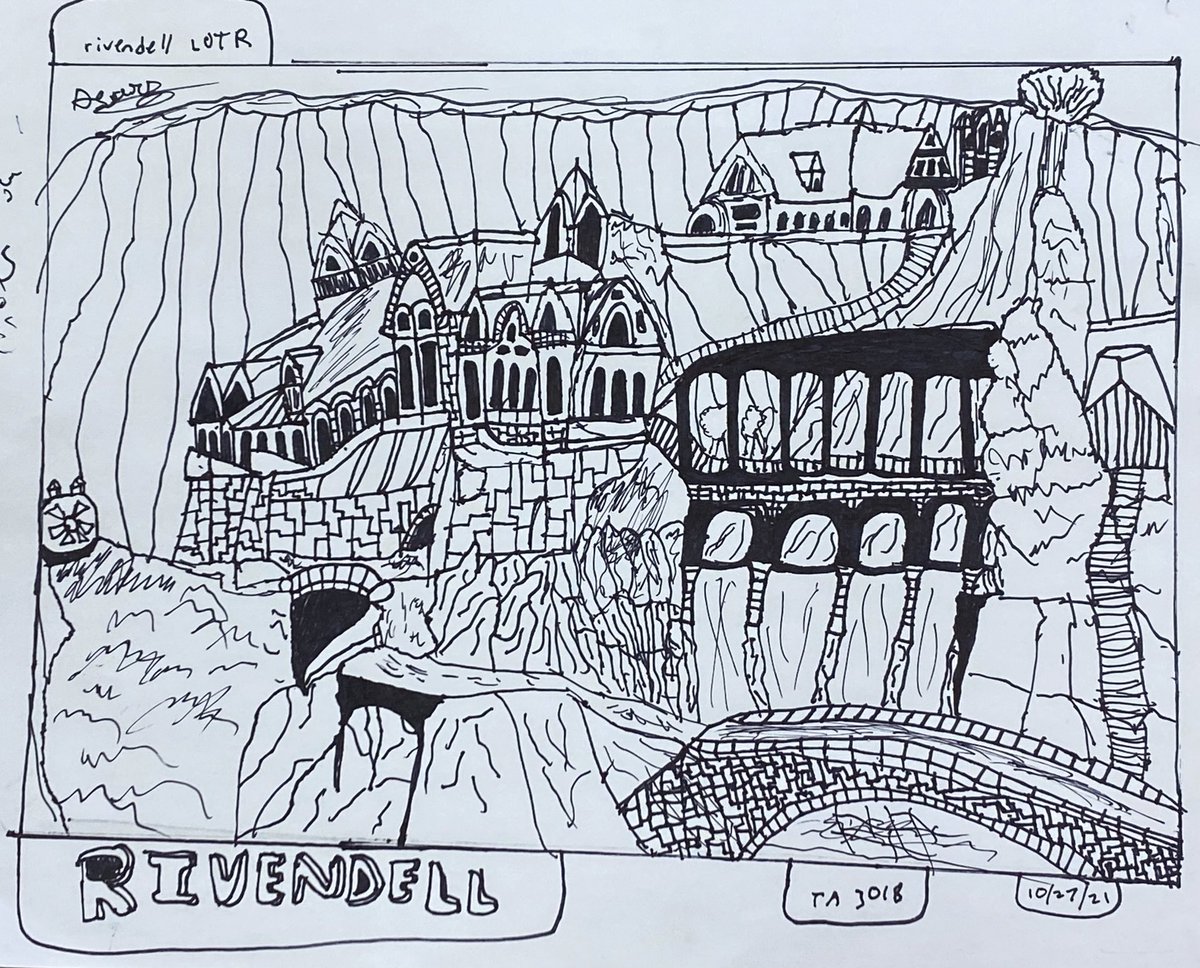 rivendell LOTR
RIVENDELL
TA 3018
10/27/21